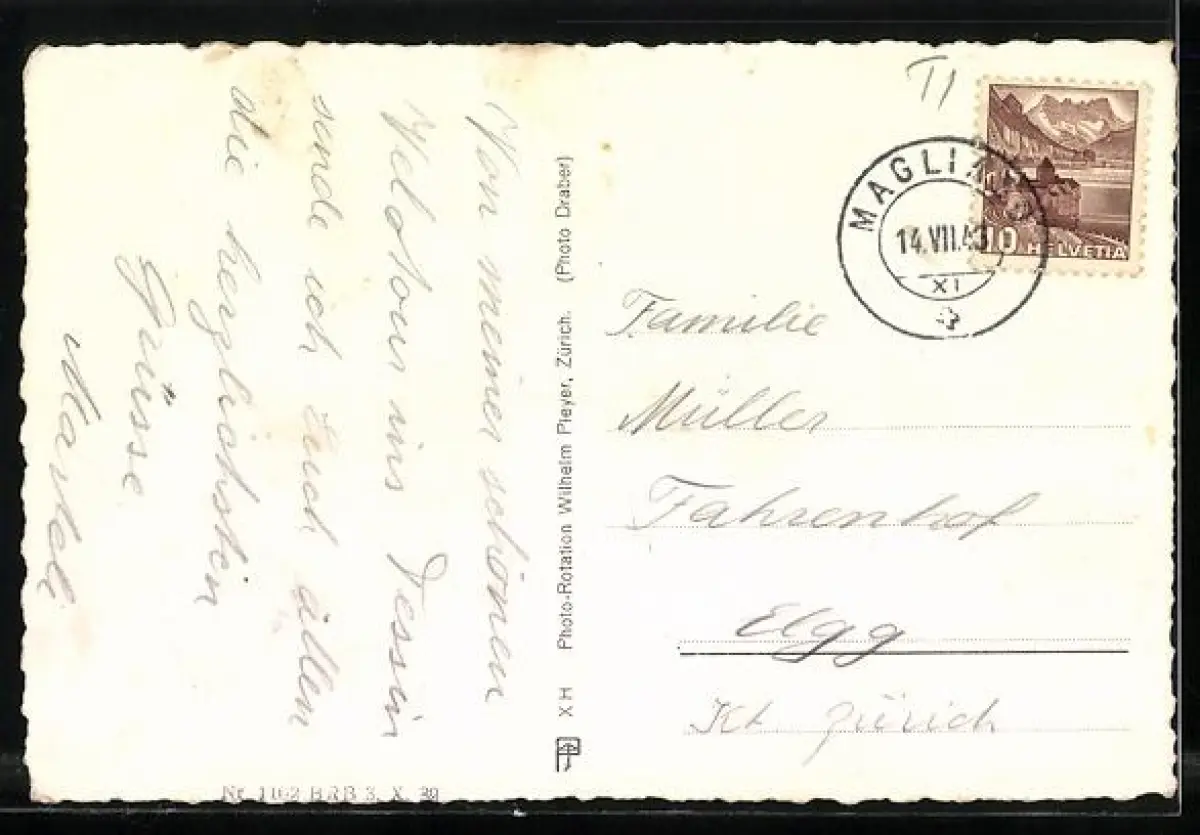 Von meiner schönen
Velotour ins Tessin
sende ich Euch allen
die herzlichsten
Grüsse.
XH Photo-Rotation Wilhelm Pleyer, Zürich. (Photo Draber)
Nr. 1162 BRB 3. X. 39
TI
MAGLIASO
14.VII.43
XI
10 HELVETIA
Familie
Müller
Fahrenhof
Elgg
Kt. Zürich